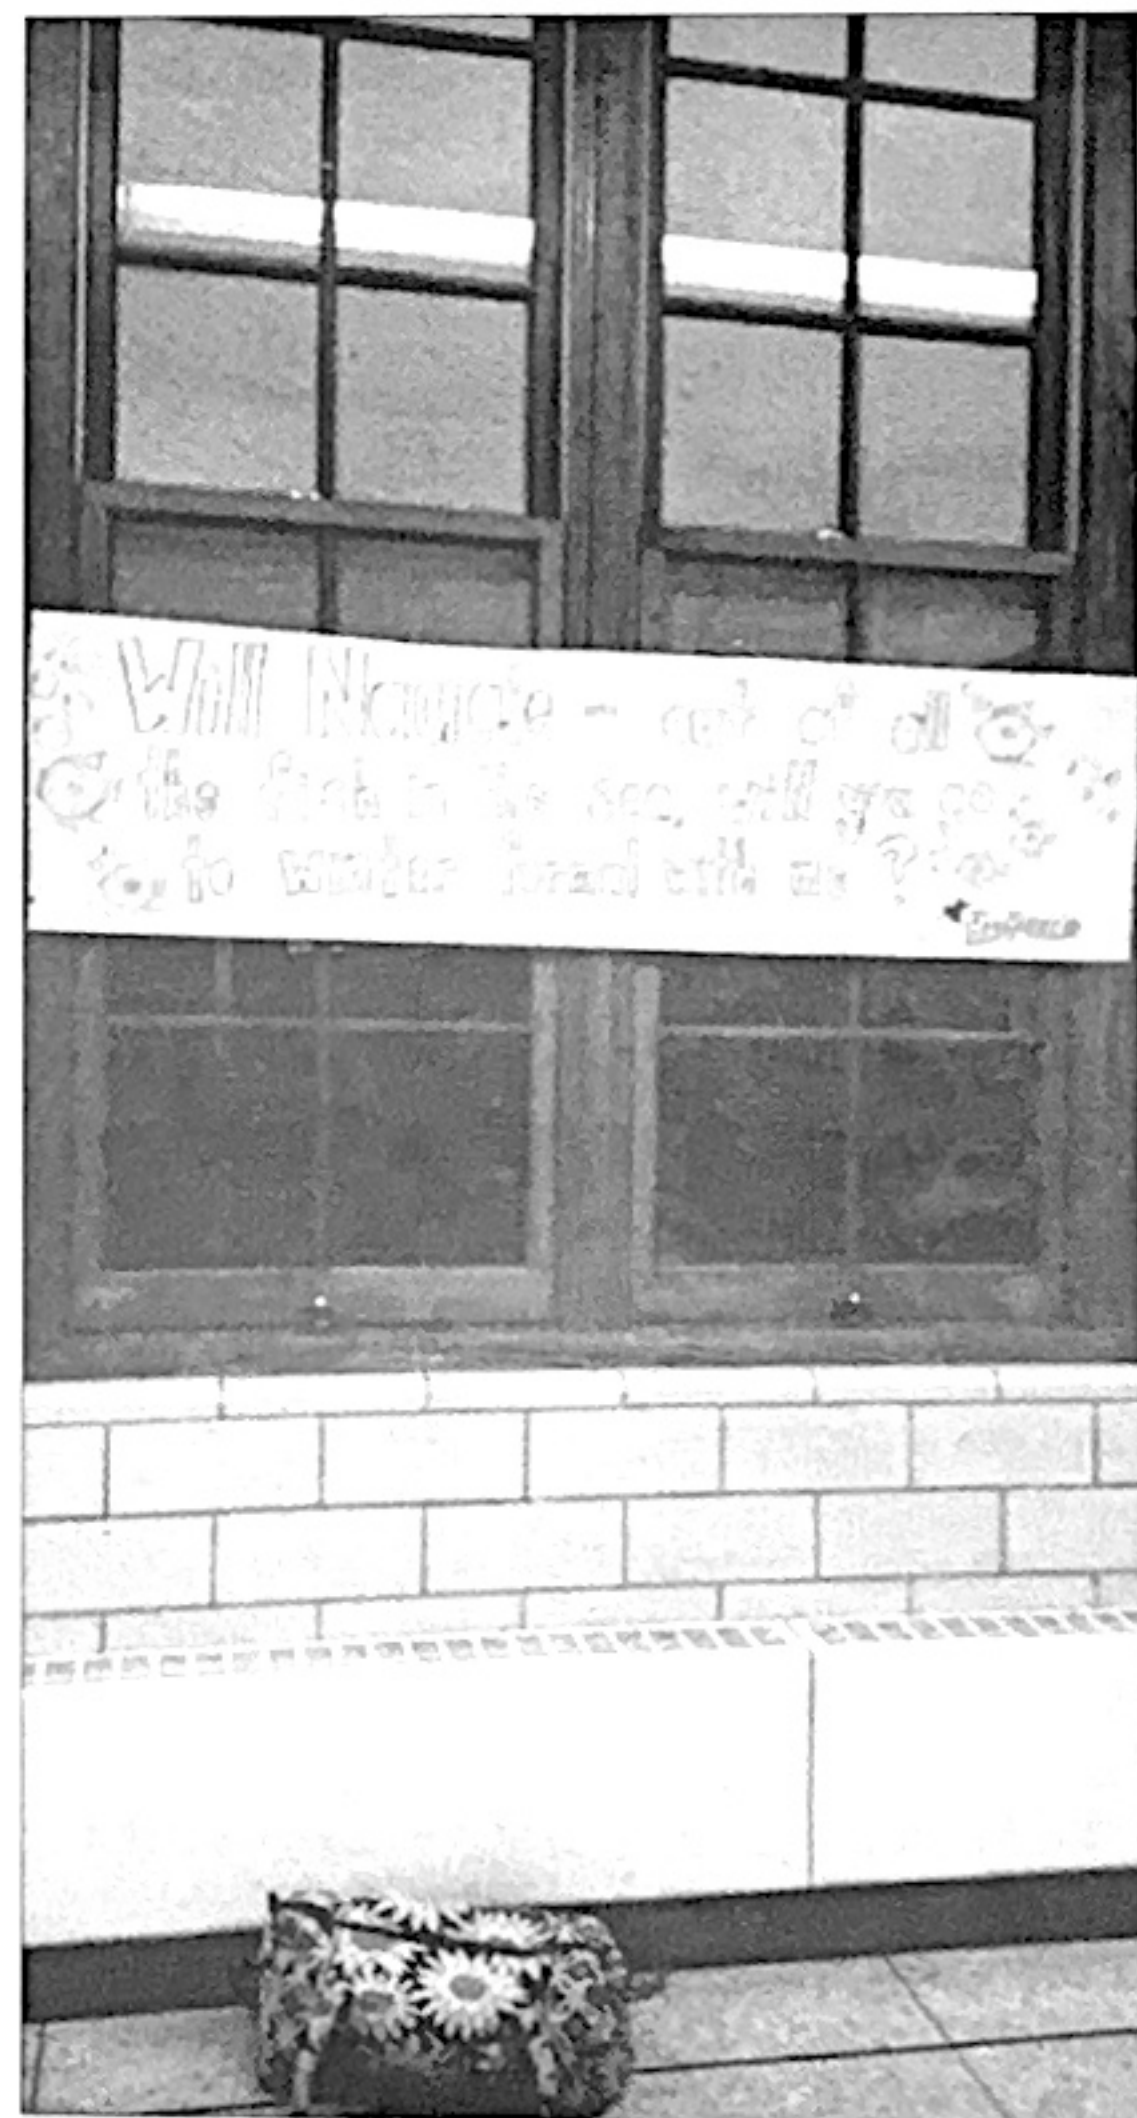 Will - out of all
the fish in the sea, will you go
to winter formal with me?